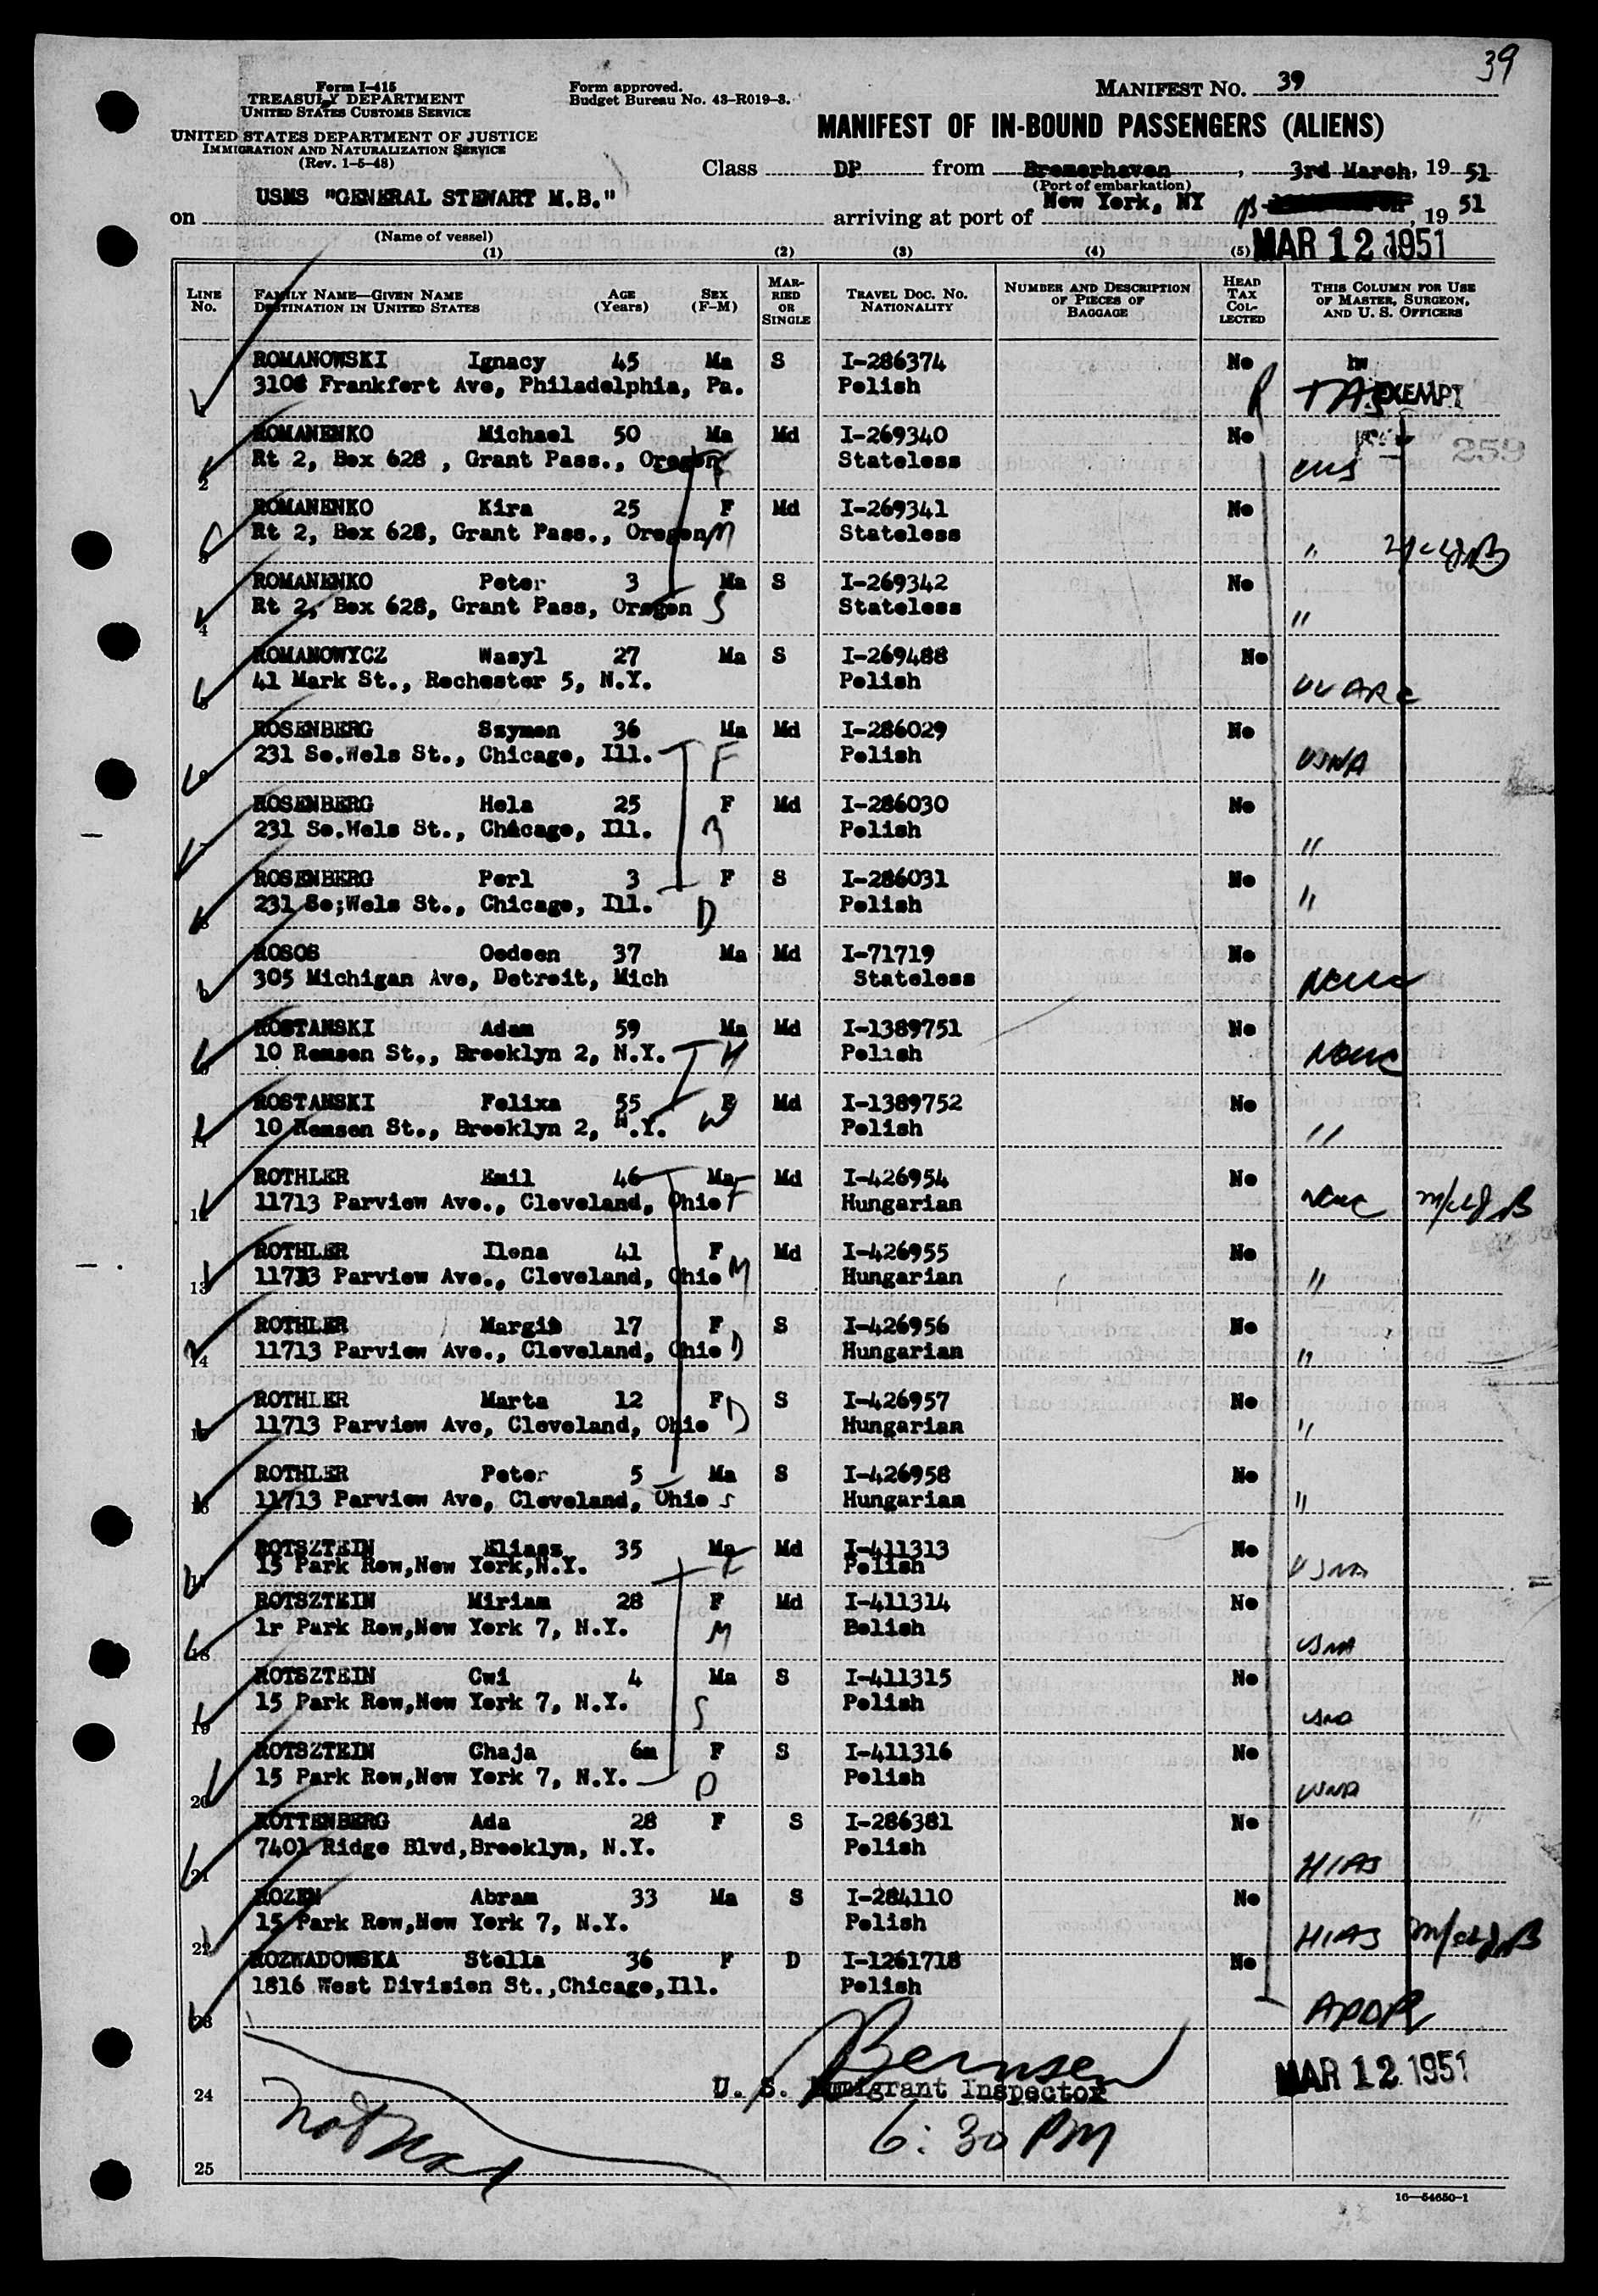 39
Form I-415
TREASURY DEPARTMENT
UNITED STATES CUSTOMS SERVICE
UNITED STATES DEPARTMENT OF JUSTICE
IMMIGRATION AND NATURALIZATION SERVICE
(Rev. 1-5-48)
Form approved.
Budget Bureau No. 43-R019-3.
MANIFEST NO. 39
MANIFEST OF IN-BOUND PASSENGERS (ALIENS)
Class DP from Bremerhaven, 3rd March, 19 51
(Port of embarkation)
on USMS "GENERAL STEWART M.B." arriving at port of New York, NY, 19 51
(Name of vessel)
MAR 12 1951
(1) (2) (3) (4) (5)
LINE NO. FAMILY NAME—GIVEN NAME DESTINATION IN UNITED STATES AGE (Years) SEX (F-M) MARRIED OR SINGLE TRAVEL DOC. NO. NATIONALITY NUMBER AND DESCRIPTION OF PIECES OF BAGGAGE HEAD TAX COLLECTED THIS COLUMN FOR USE OF MASTER, SURGEON, AND U. S. OFFICERS
ROMANOWSKI Ignacy 45 Ma S I-286374 No
3108 Frankfort Ave, Philadelphia, Pa. Polish EXEMPT
2 ROMANENKO Michael 50 Ma Md I-269340 No
Rt 2, Box 628 , Grant Pass., Oregon F Stateless 259
3 ROMANENKO Kira 25 F Md I-269341 No
Rt 2, Box 628, Grant Pass., Oregon M Stateless "
4 ROMANENKO Peter 3 Ma S I-269342 No
Rt 2, Box 628, Grant Pass, Oregon S Stateless "
5 ROMANOWYCZ Wasyl 27 Ma S I-269488 No
41 Mark St., Rochester 5, N.Y. Polish
6 ROSENBERG Szymon 36 Ma Md I-286029 No
231 So.Wels St., Chicago, Ill. F Polish USNA
7 ROSENBERG Hela 25 F Md I-286030 No
231 So.Wels St., Chicago, Ill. M Polish "
8 ROSENBERG Perl 3 F S I-286031 No
231 So;Wels St., Chicago, Ill. D Polish "
9 ROSOS Oedeen 37 Ma Md I-71719 No
305 Michigan Ave, Detroit, Mich Stateless NCWC
10 ROSTANSKI Adam 59 Ma Md I-1389751 No
10 Remsen St., Brooklyn 2, N.Y. H Polish NCWC
11 ROSTANSKI Felixa 55 F Md I-1389752 No
10 Remsen St., Brooklyn 2, N.Y. W Polish "
12 ROTHLER Emil 46 Ma Md I-426954 No
11713 Parview Ave., Cleveland, Ohio F Hungarian NCWC
13 ROTHLER Ilona 41 F Md I-426955 No
11713 Parview Ave., Cleveland, Ohio M Hungarian "
14 ROTHLER Margit 17 F S I-426956 No
11713 Parview Ave., Cleveland, Ohio D Hungarian "
15 ROTHLER Marta 12 F S I-426957 No
11713 Parview Ave, Cleveland, Ohio D Hungarian "
16 ROTHLER Peter 5 Ma S I-426958 No
11713 Parview Ave, Cleveland, Ohio S Hungarian "
17 ROTSZTEIN Eliasz 35 Ma Md I-411313 No
15 Park Row,New York,N.Y. F Polish USNA
18 ROTSZTEIN Miriam 28 F Md I-411314 No
1r Park Row,New York 7, N.Y. M Bolish USNA
19 ROTSZTEIN Cwi 4 Ma S I-411315 No
15 Park Row,New York 7, N.Y. S Polish USNA
20 ROTSZTEIN Chaja 6m F S I-411316 No
15 Park Row,New York 7, N.Y. D Polish USNA
21 ROTTENBERG Ada 28 F S I-286381 No
7401 Ridge Blvd,Brooklyn, N.Y. Polish HIAS
22 ROZEN Abram 33 Ma S I-284110 No
15 Park Row,New York 7, N.Y. Polish HIAS
23 ROZWADOWSKA Stella 36 F D I-1261718 No
1816 West Division St.,Chicago,Ill. Polish APDR
Bernsen
24 U. S. Immigrant Inspector MAR 12 1951
6:30 PM
25
16—54650-1